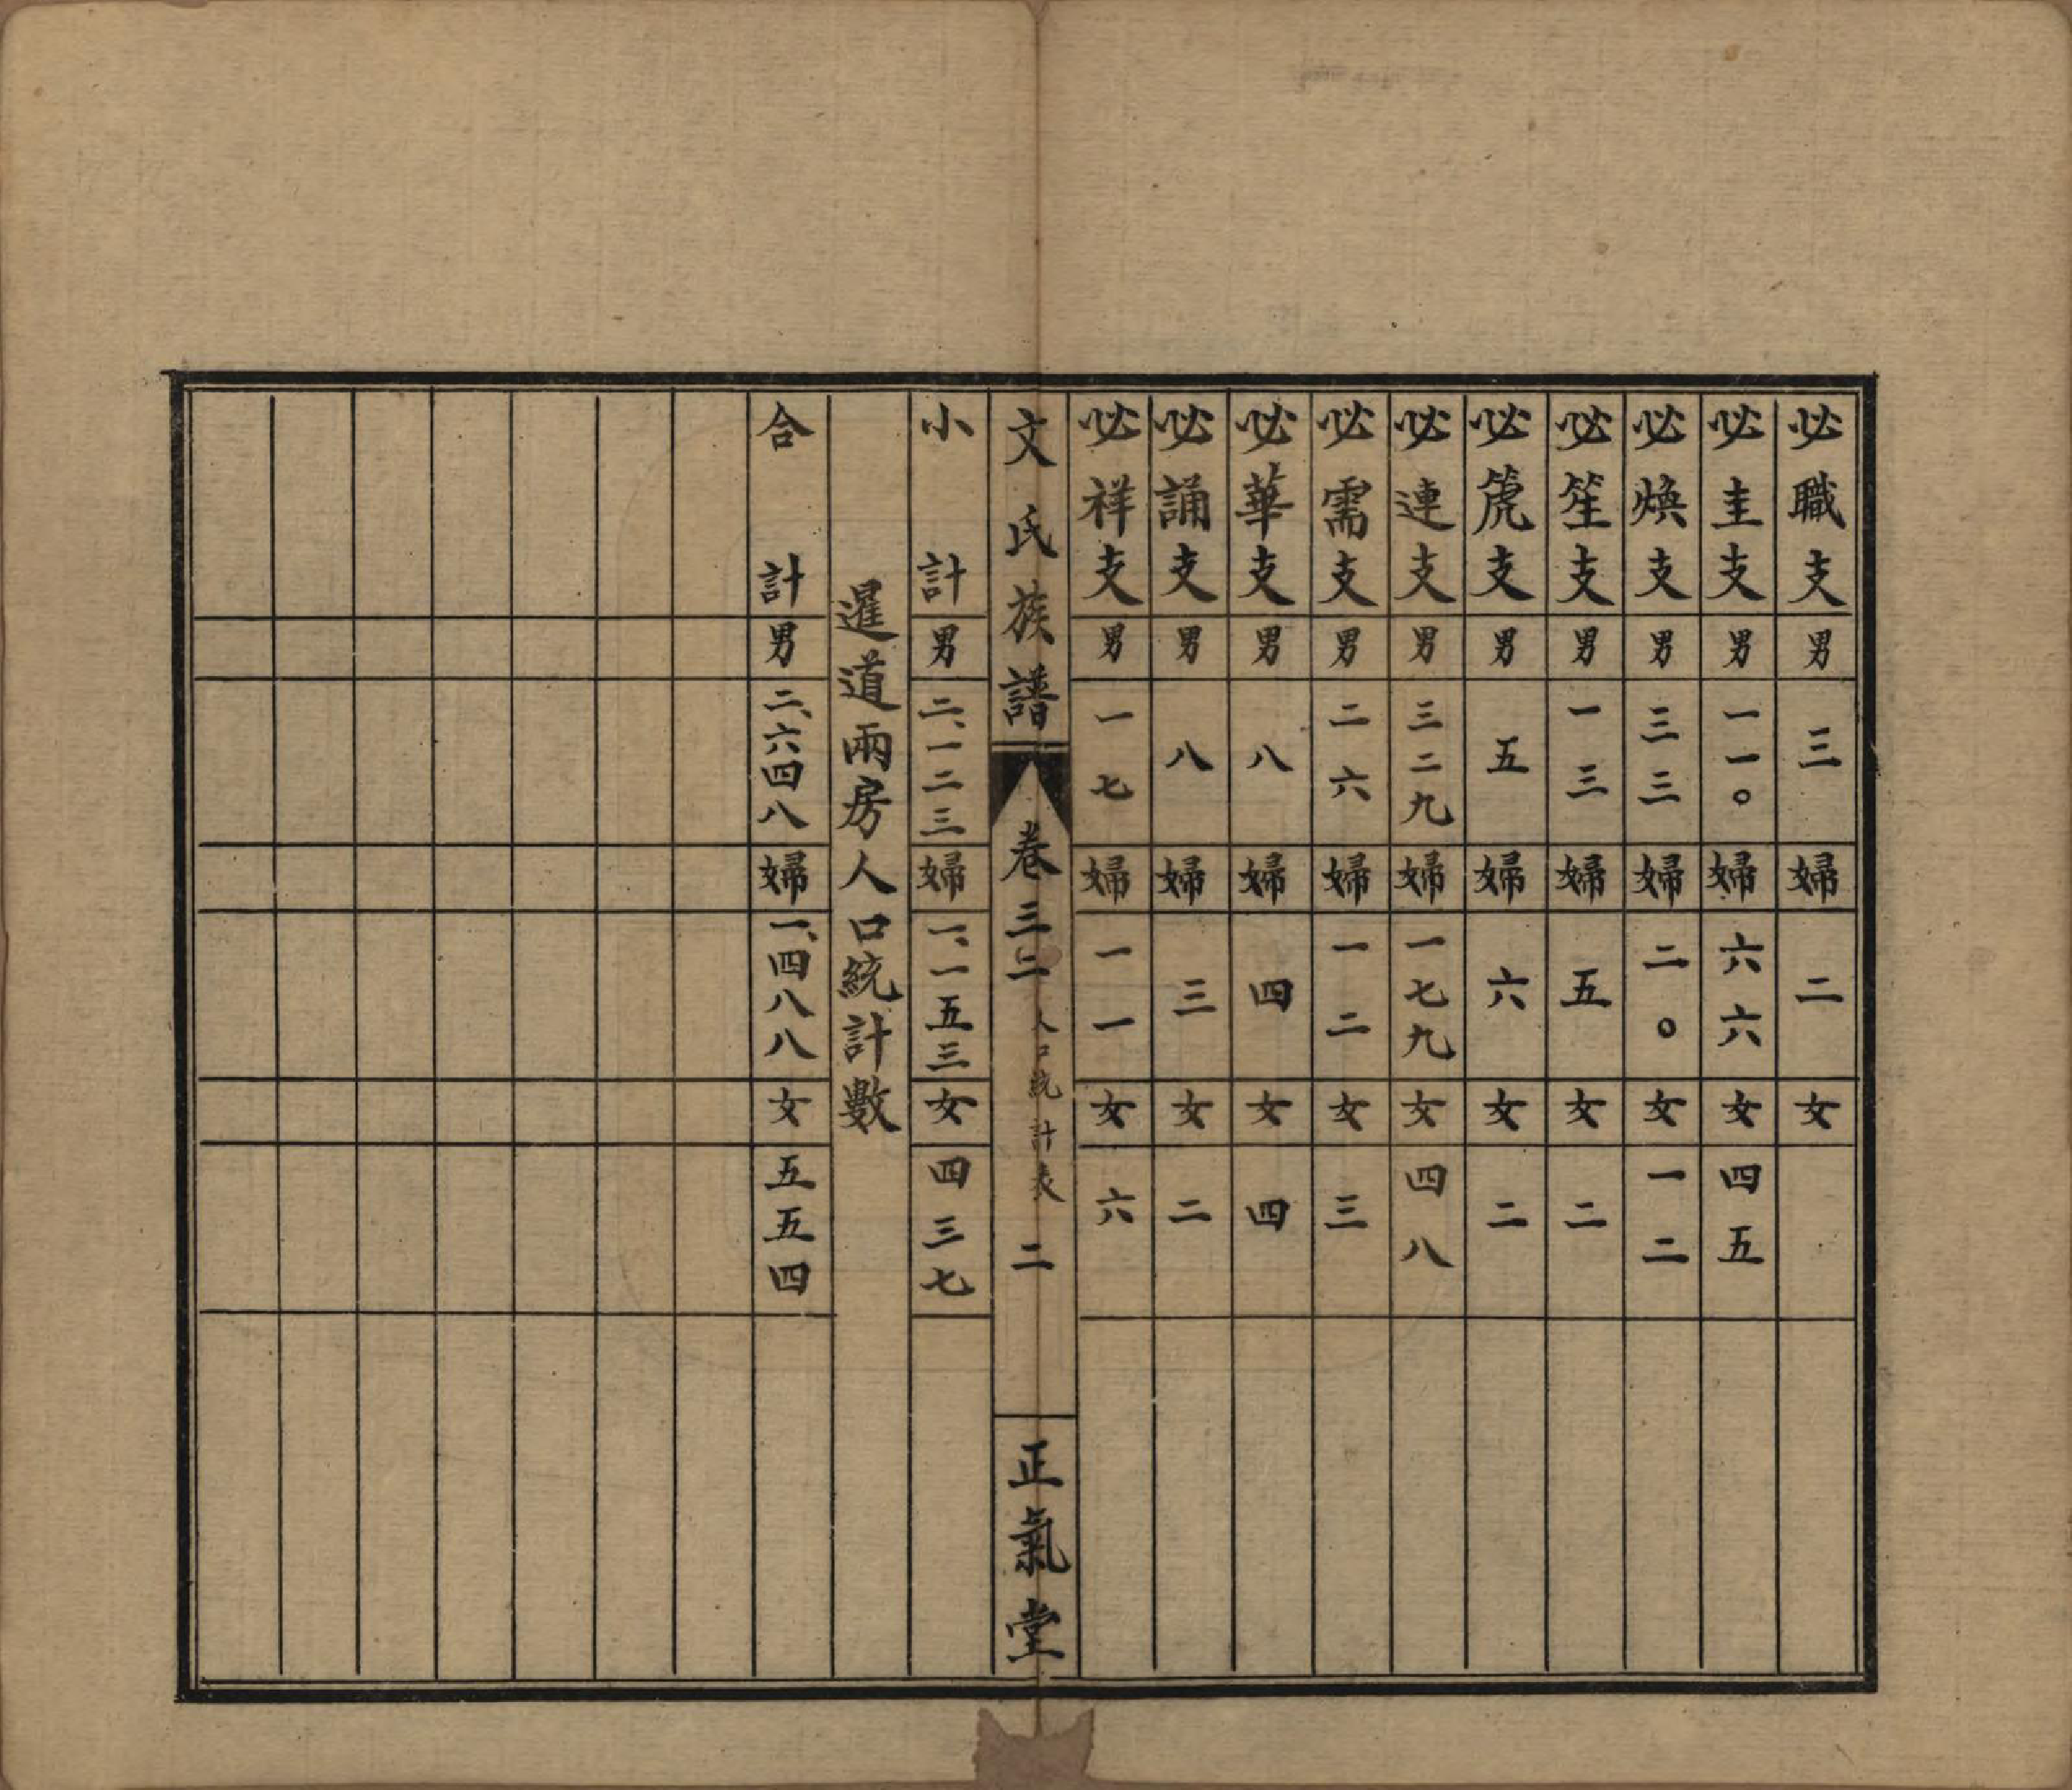 必職支 男 三 婦 二 女
必圭支 男 一一〇 婦 六六 女 四五
必煥支 男 三三 婦 二〇 女 一二
必笙支 男 一三 婦 五 女 二
必篪支 男 五 婦 六 女 二
必連支 男 三二九 婦 一七九 女 四八
必需支 男 二六 婦 一二 女 三
必華支 男 八 婦 四 女 四
必誦支 男 八 婦 三 女 二
必祥支 男 一七 婦 一一 女 六
文氏族譜 卷三二 人口統計表 二 正氣堂
小計 男 二、一二三 婦 一、一五三 女 四三七
暹道兩房人口統計數
合計 男 二、六四八 婦 一、四八八 女 五五四